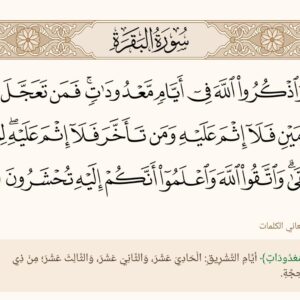 سُورَةُ البَقَرَةِ
اذْكُرُوا۟ اللَّهَ فِىٓ أَيَّامٍ مَّعْدُودَٰتٍ ۚ فَمَن تَعَجَّلَ
مَيْنِ فَلَآ إِثْمَ عَلَيْهِ وَمَن تَأَخَّرَ فَلَآ إِثْمَ عَلَيْهِ ۖ لِ
ىٰ ۗ وَاتَّقُوا۟ اللَّهَ وَاعْلَمُوٓا۟ أَنَّكُمْ إِلَيْهِ تُحْشَرُونَ
عاني الكلمات
عْدُودَاتٍ﴾ أَيَّامِ التَّشْرِيقِ: الْحَادِيَ عَشَرَ، وَالثَّانِيَ عَشَرَ، وَالثَّالِثَ عَشَرَ؛ مِنْ ذِي
حِجَّةِ.